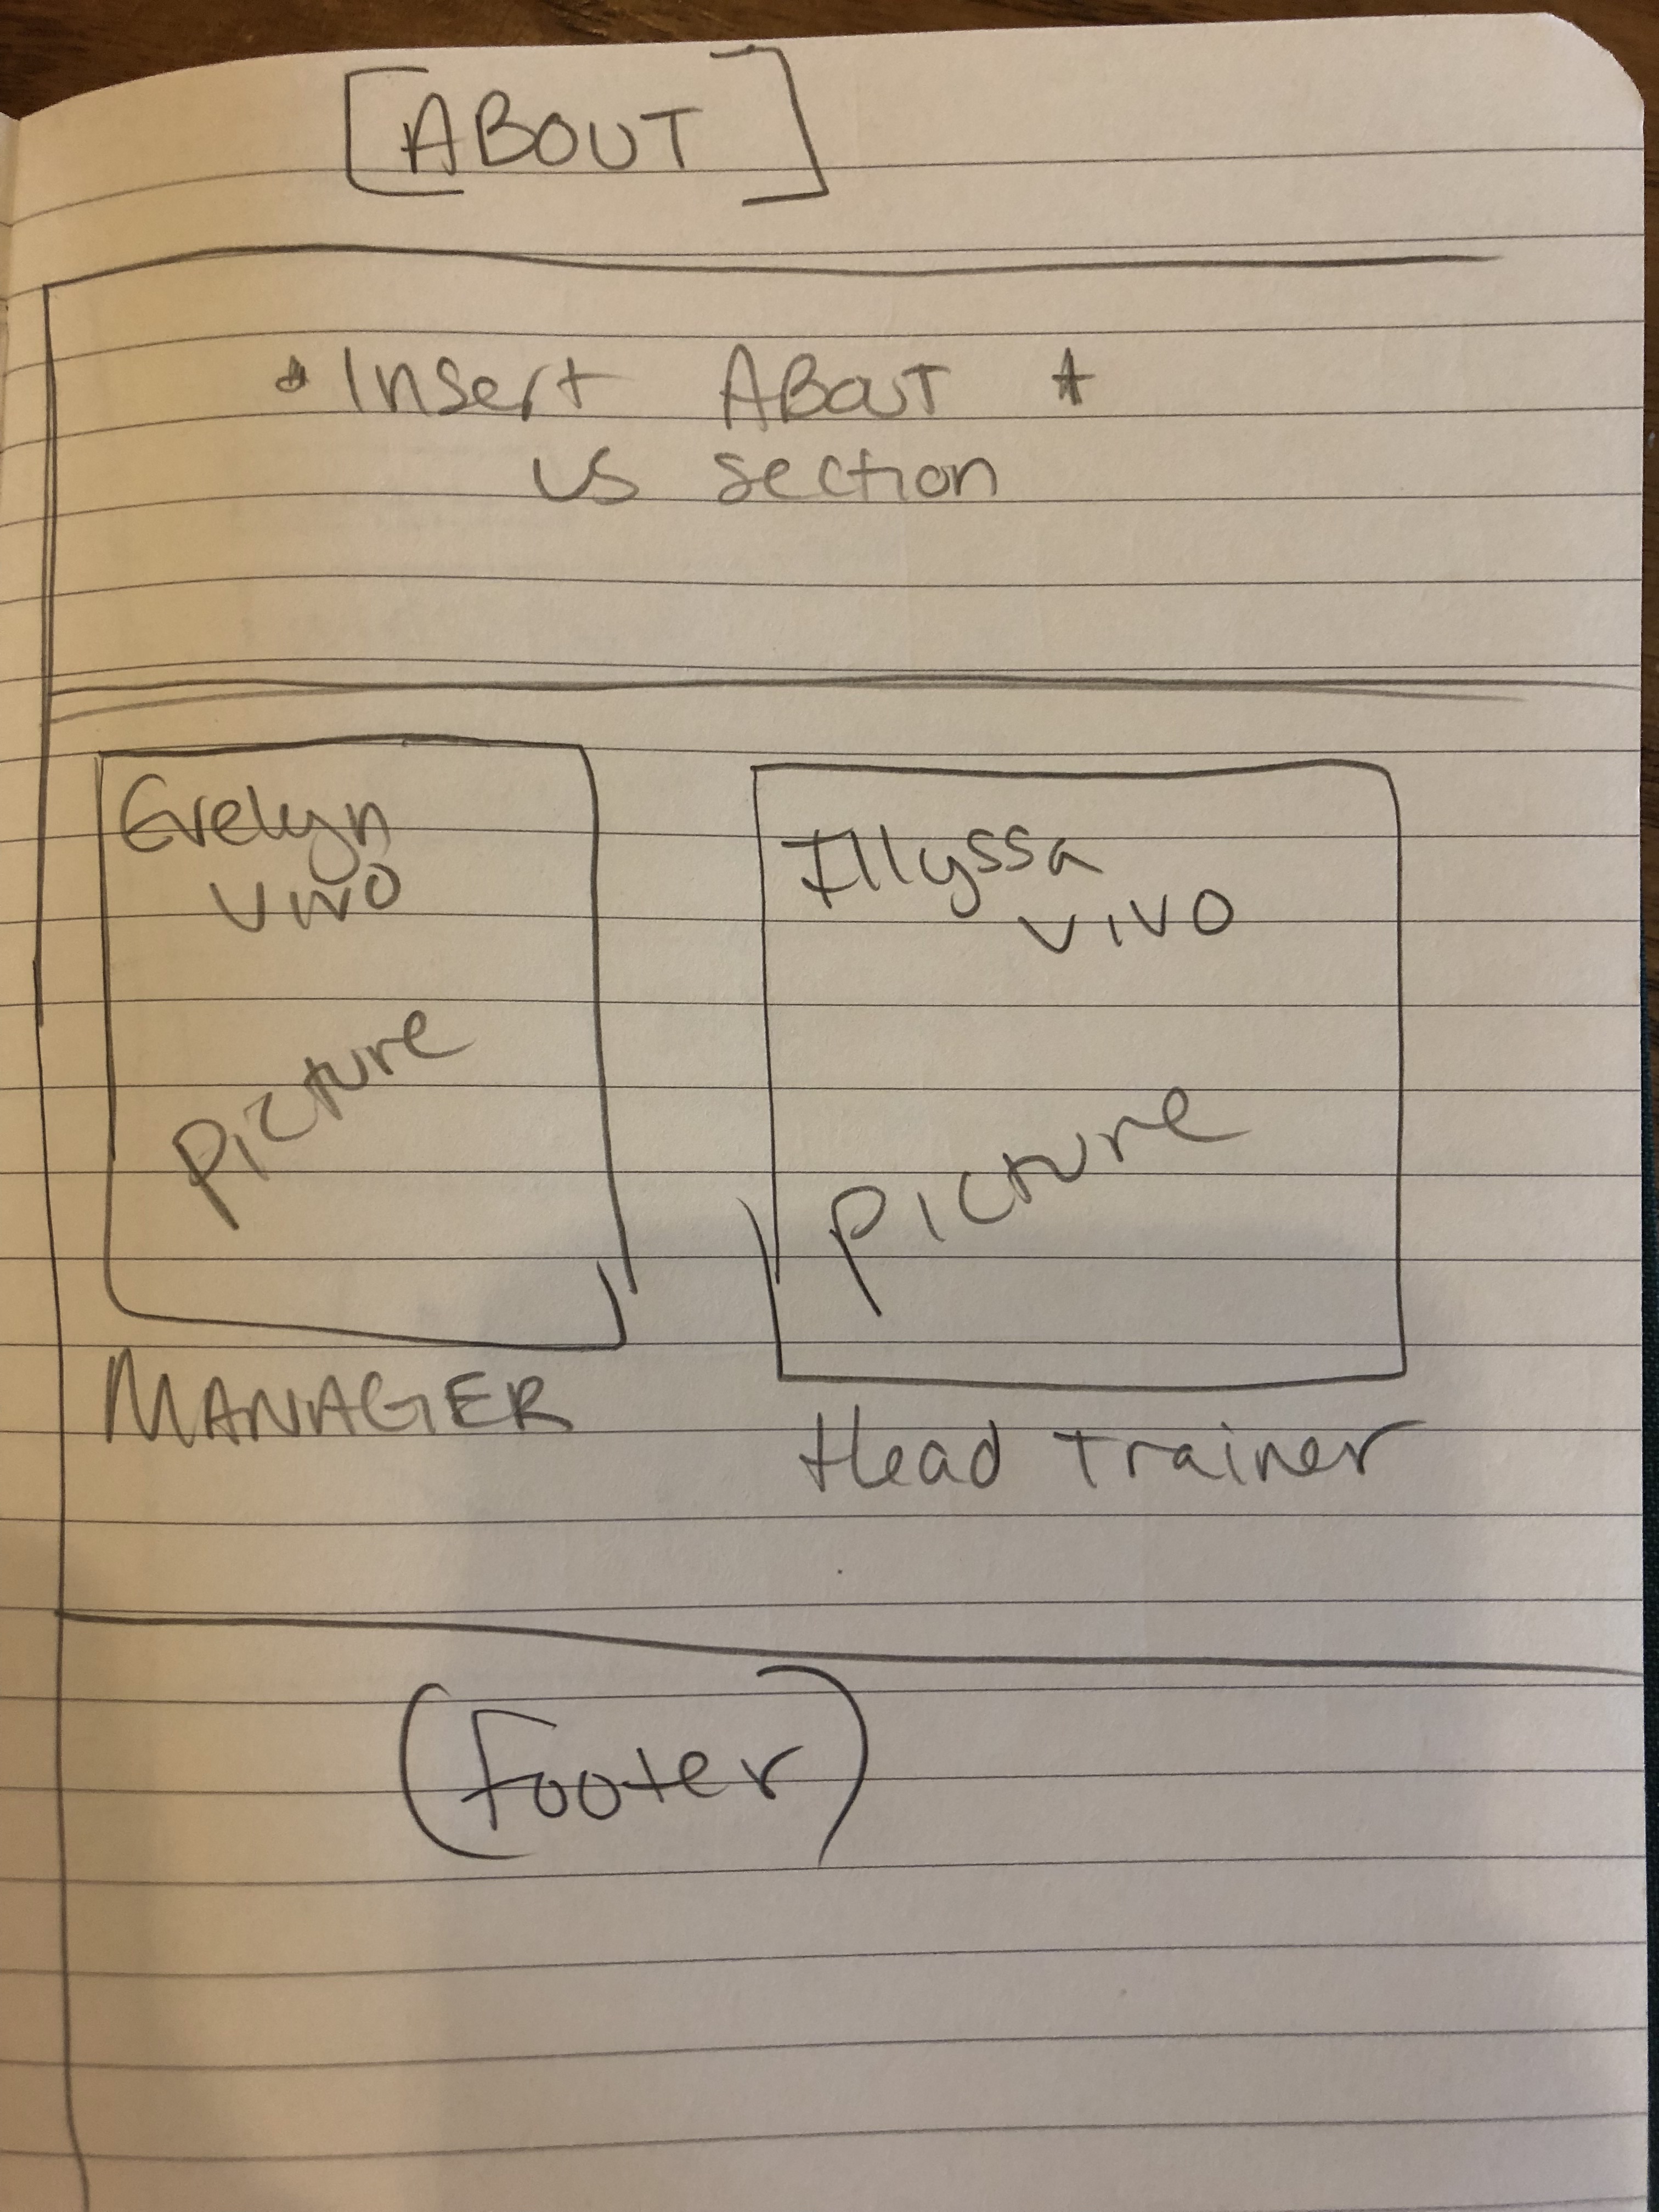 [ABOUT]
* Insert ABOUT *
us section
Evelyn
VIVO
Picture
MANAGER
Illyssa
VIVO
Picture
Head Trainer
(Footer)